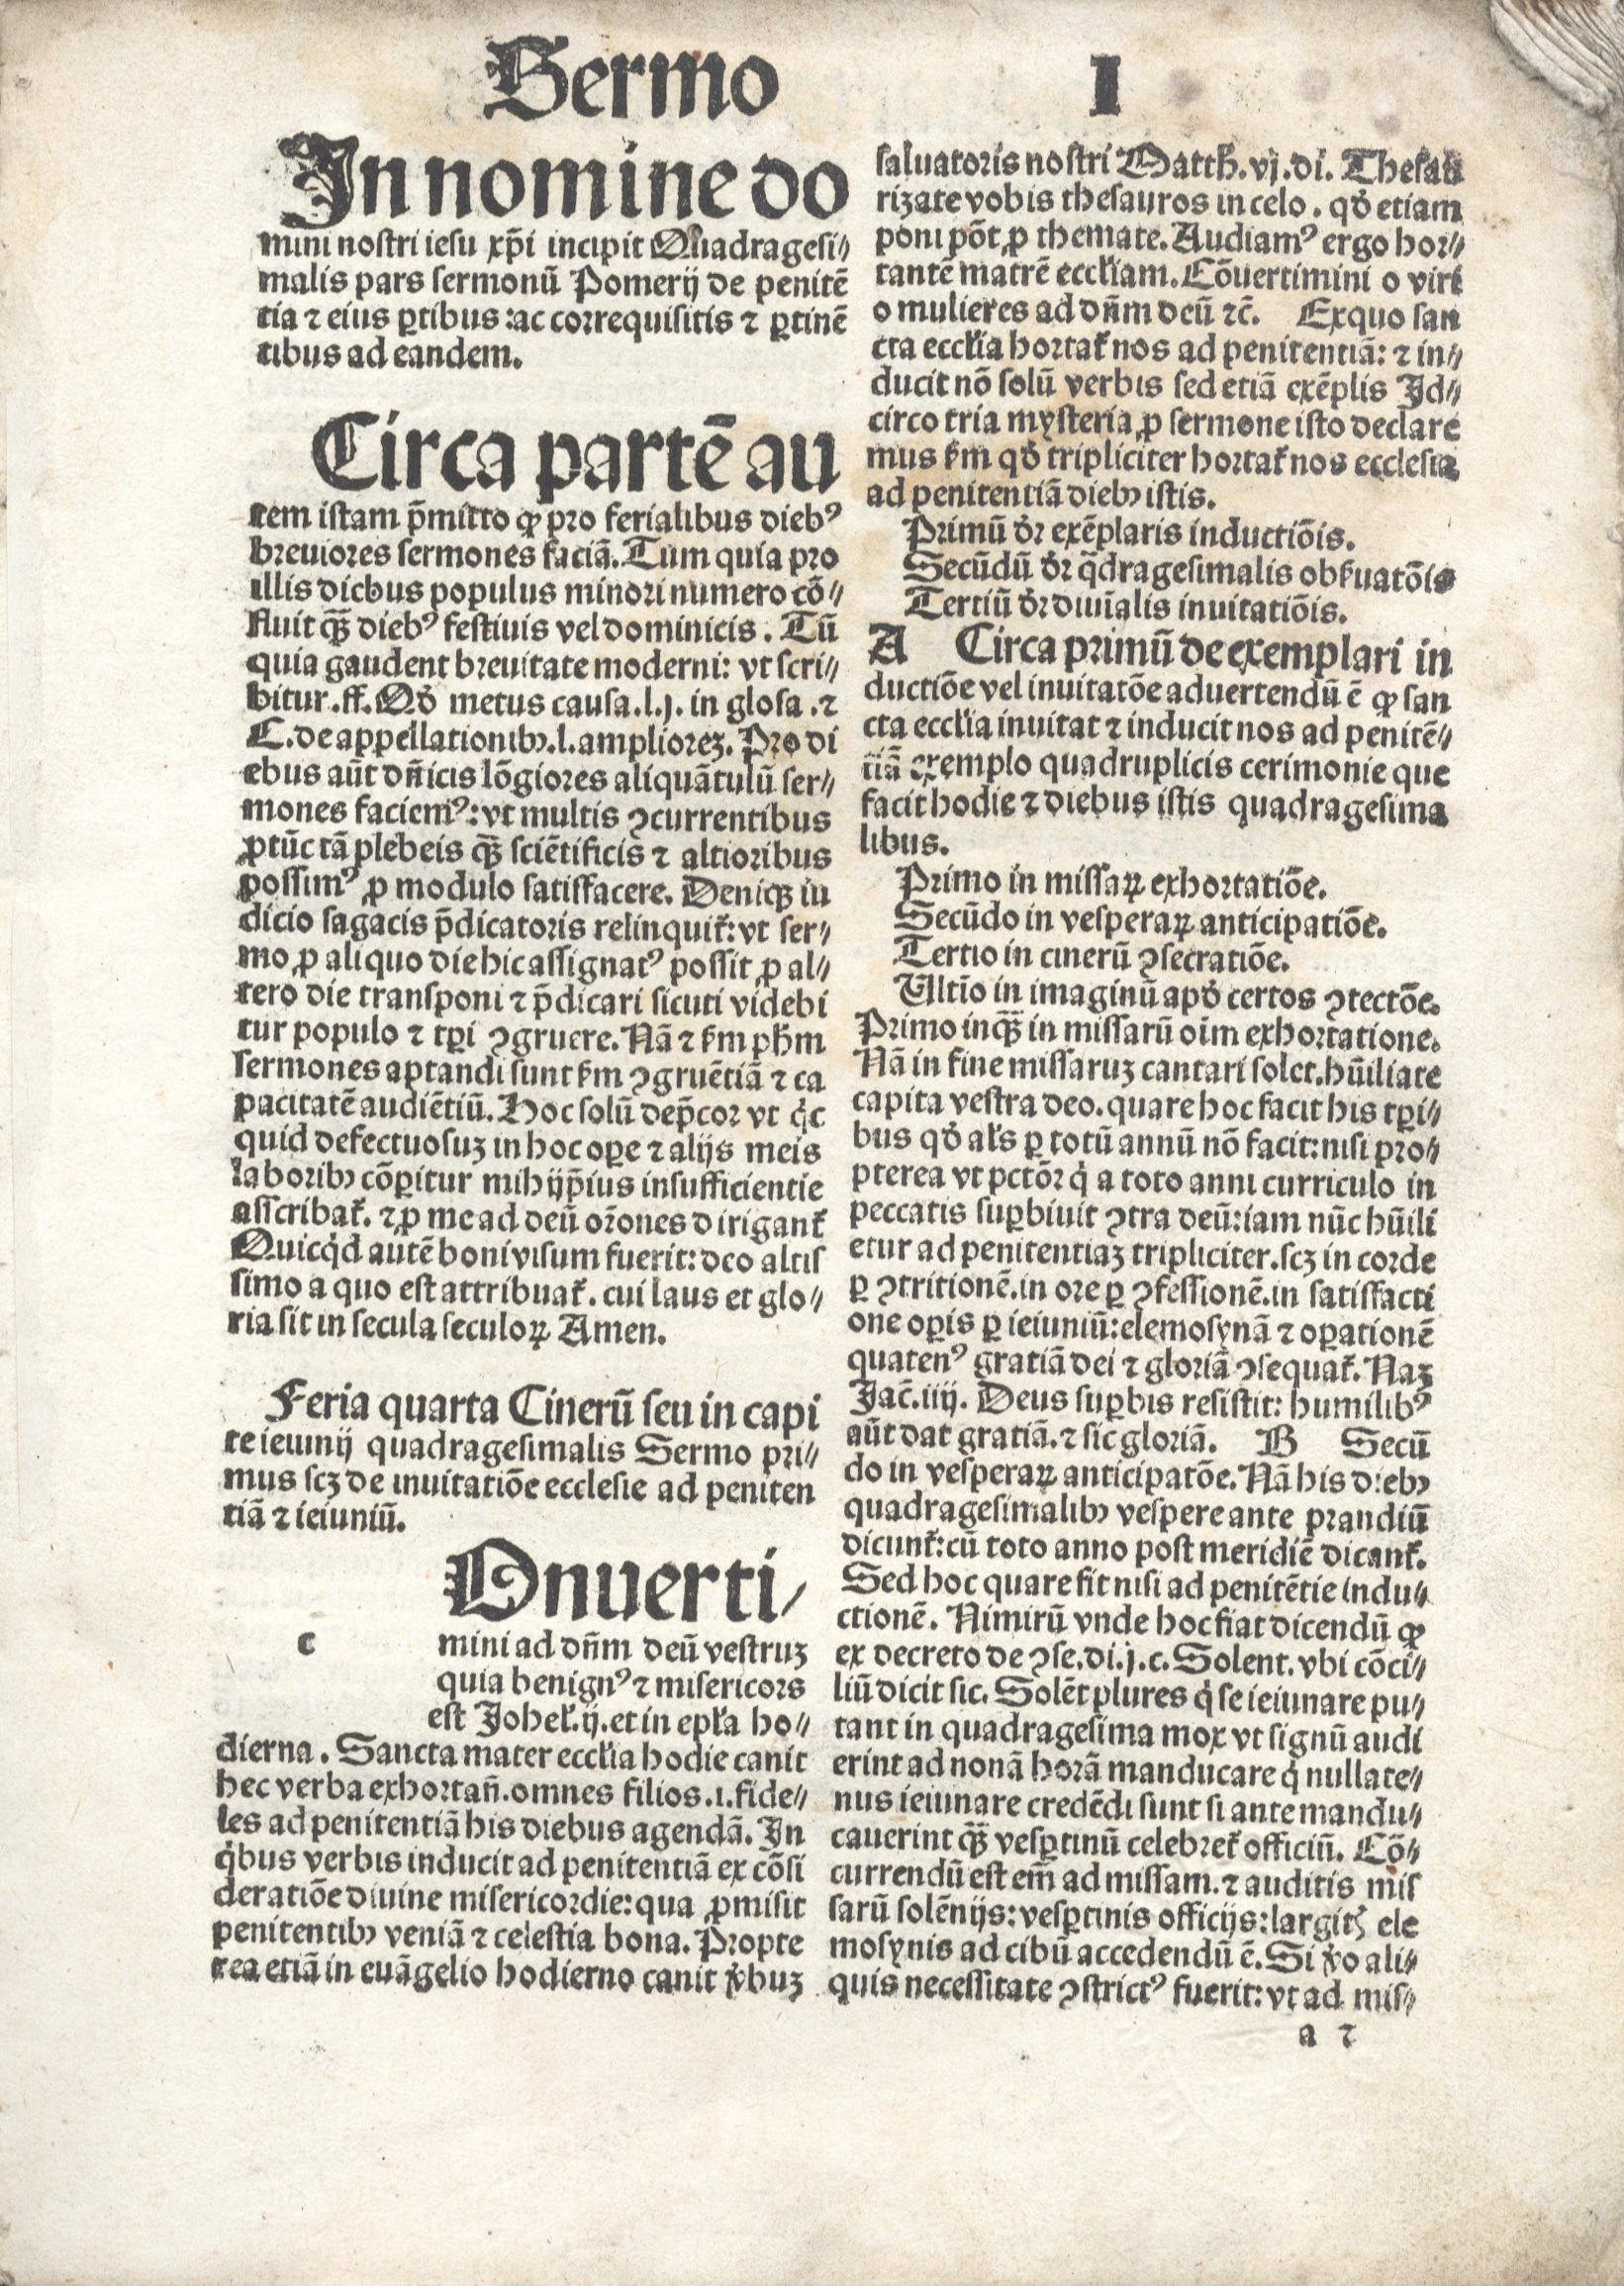 Sermo
I
In nomine do
mini nostri iesu xp̄i incipit Quadragesi⸗
malis pars sermonū Pomerij de penitē
tia ⁊ eius ꝑtibus: ac correquisitis ⁊ ꝑtinē
tibus ad eandem.
Circa partē au
tem istam p̄mitto ꝙ pro ferialibus diebꝰ
breuiores sermones faciā. Tum quia pro
illis diebus populus minori numero cō⸗
fluit qꝫ̄ diebꝰ festiuis vel dominicis. Tū
quia gaudent breuitate moderni: vt scri⸗
bitur .ff. Qđ metus causa .l.j. in glosa .⁊
C. de appellationibꝫ .l. amplioreꝫ. Pro di
ebus aūt dn̄icis lōgiores aliquātulū ser⸗
mones faciemꝰ: vt multis ↄcurrentibus
ꝓtūc tā plebeis qꝫ̄ sciētificis ⁊ altioribus
possimꝰ ꝓ modulo satisfacere. Deniqꝫ iu
dicio sagacis p̄dicatoris relinquit᷑: vt ser⸗
mo ꝓ aliquo die hic assignatꝰ possit ꝓ al⸗
tero die transponi ⁊ p̄dicari sicuti videbi
tur populo ⁊ tꝑi ↄgruere. Nā ⁊ ẜm pħm
sermones aptandi sunt ẜm ↄgruētiā ⁊ ca
pacitatē audiētiū. Hoc solū dep̄cor vt qͥc
quid defectuosuꝫ in hoc oꝑe ⁊ alijs meis
laboribꝫ cōꝑitur mihijp̄ius insufficientie
asscribat᷑. ⁊ ꝓ me ad deū or̄ones dirigant᷑
Quicqͥd autē boni visum fuerit: deo altis
simo a quo est attribuat᷑. cui laus et glo⸗
ria sit in secula seculoꝝ Amen.
Feria quarta Cinerū seu in capi
te ieiunij quadragesimalis Sermo pri⸗
mus scꝫ de inuitatiōe ecclesie ad peniten
tiā ⁊ ieiuniū.
c
Onuerti⸗
mini ad dn̄m deū vestruꝫ
quia benignꝰ ⁊ misericors
est Johel᷑.ij. et in epl᷑a ho⸗
dierna. Sancta mater eccl᷑ia hodie canit
hec verba exhortan̄. omnes filios .i. fide⸗
les ad penitentiā his diebus agendā. In
qͥbus verbis inducit ad penitentiā ex cōsi
deratiōe diuine misericordie: qua ꝓmisit
penitentibꝫ veniā ⁊ celestia bona. Propte
rea etiā in euāgelio hodierno canit v̓buꝫ
saluatoris nostri Matth. vj. di. Thesau
rizate vobis thesauros in celo. qđ etiam
poni pōt ꝓ themate. Audiamꝰ ergo hor⸗
tantē matrē eccl᷑iam. Cōuertimini o viri
o mulieres ad dn̄m deū ⁊c̄. Exquo san
cta eccl᷑ia hortat᷑ nos ad penitentiā: ⁊ in⸗
ducit nō solū verbis sed etiā exēplis Id⸗
circo tria mysteria ꝓ sermone isto declare
mus ẜm qđ tripliciter hortat᷑ nos ecclesia
ad penitentiā diebꝫ istis.
Primū dr̄ exēplaris inductiōis.
Secūdū dr̄ q̄dragesimalis obẜuatōis
Tertiū dr̄ diuīalis inuitatiōis.
A Circa primū de exemplari in
ductiōe vel inuitatōe aduertendū ē ꝙ san
cta eccl᷑ia inuitat ⁊ inducit nos ad penitē⸗
tiā exemplo quadruplicis cerimonie que
facit hodie ⁊ diebus istis quadragesima
libus.
Primo in missaꝝ exhortatiōe.
Secūdo in vesperaꝝ anticipatiōe.
Tertio in cinerū ↄsecratiōe.
Ultīo in imaginū apđ certos ↄtectōe.
Primo inqꝫ̄ in missarū oīm exhortatione.
Nā in fine missaruꝫ cantari solet. hūiliate
capita vestra deo. quare hoc facit his tꝑi⸗
bus qđ al᷑s ꝑ totū annū nō facit: nisi pro⸗
pterea vt pctōr qͥ a toto anni curriculo in
peccatis suꝑbiuit ↄtra deū: iam nūc hūili
etur ad penitentiaꝫ tripliciter. scꝫ in corde
ꝑ ↄtritionē. in ore ꝑ ↄfessionē. in satisfacti
one oꝑis ꝑ ieiuniū: elemosynā ⁊ oꝑationē
quatenꝰ gratiā dei ⁊ gloriā ↄsequat᷑. Naꝫ
Jac̄. iiij. Deus suꝑbis resistit: humilibꝰ
aūt dat gratiā. ⁊ sic gloriā. B Secū
do in vesperaꝝ anticipatōe. Nā his diebꝫ
quadragesimalibꝫ vespere ante prandiū
dicunt᷑: cū toto anno post meridiē dicant᷑.
Sed hoc quare fit nisi ad penitētie indu⸗
ctionē. Nimirū vnde hoc fiat dicendū ꝙ
ex decreto de ↄse. di. j. c. Solent. vbi cōci⸗
liū dicit sic. Solēt plures qͥ se ieiunare pu⸗
tant in quadragesima mox vt signū audi
erint ad nonā horā manducare qͥ nullate⸗
nus ieiunare credēdi sunt si ante mandu⸗
cauerint qꝫ̄ vesꝑtinū celebret᷑ officiū. Cō⸗
currendū est em̄ ad missam. ⁊ auditis mis
sarū solēnijs: vesꝑtinis officijs: largitꝭ ele
mosynis ad cibū accedendū ē. Si v̓o ali⸗
quis necessitate ↄstrictꝰ fuerit: vt ad mis⸗
a ⁊